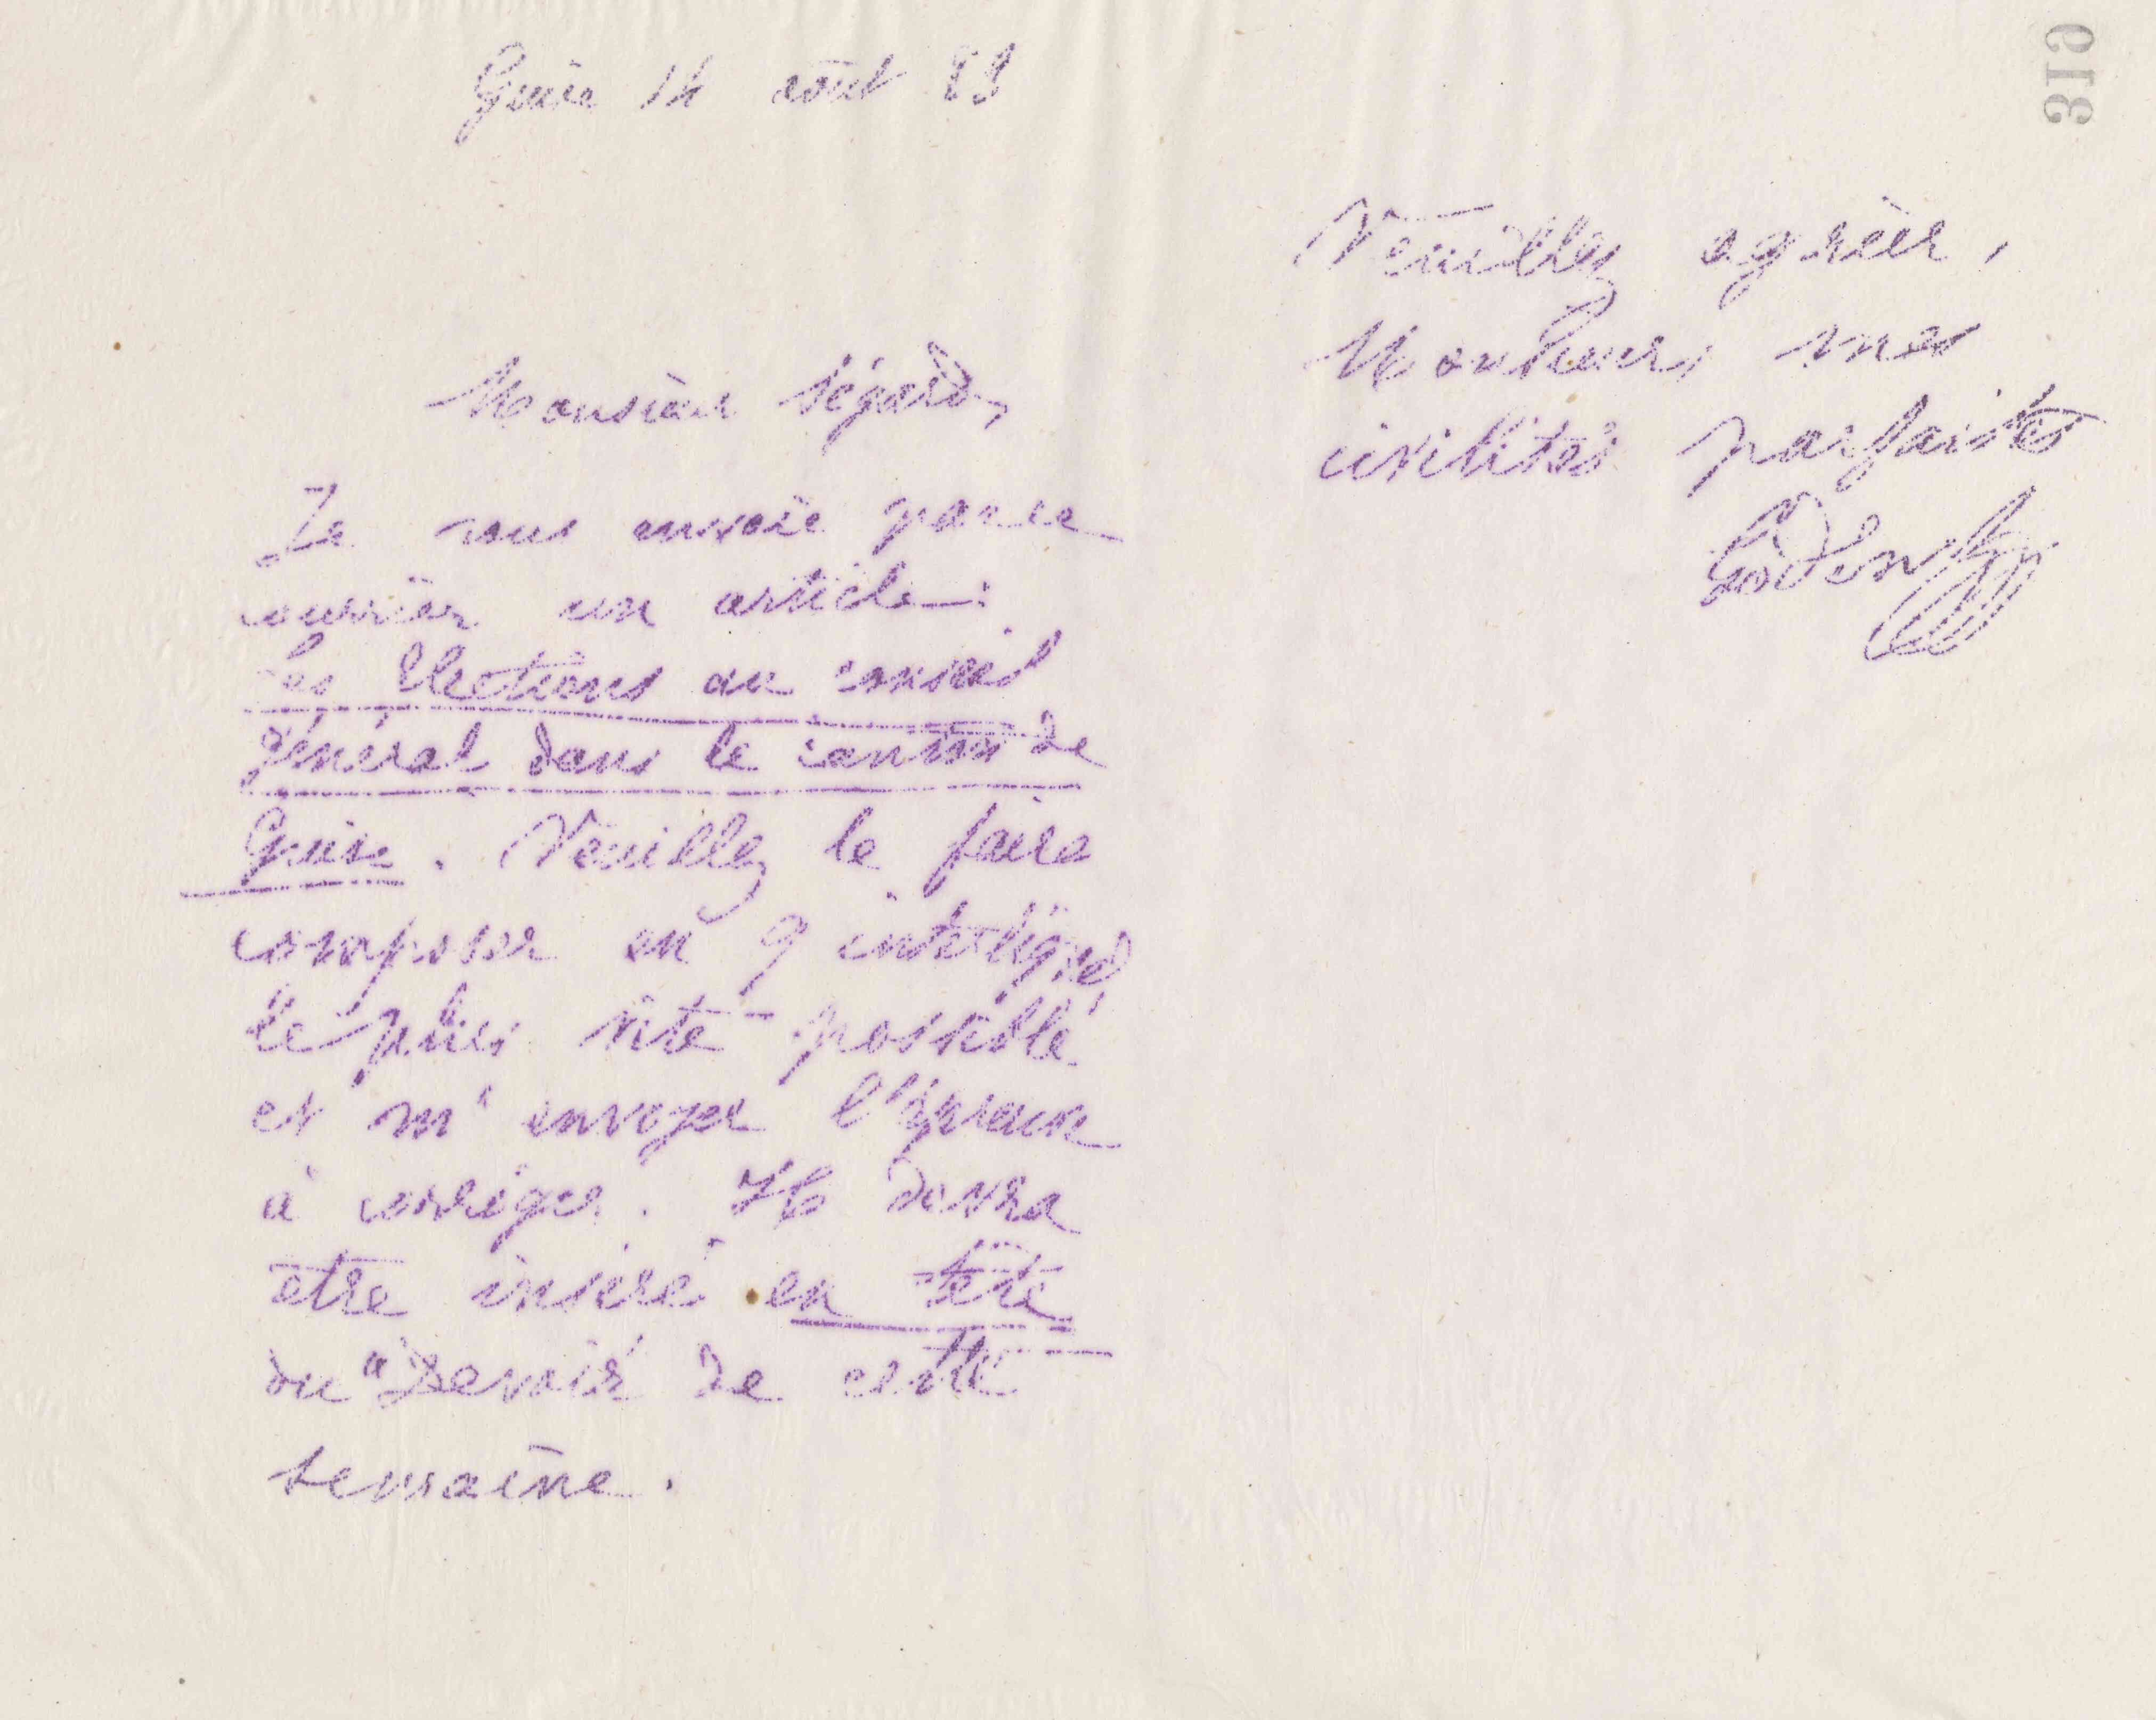 Guise 14 août 83
319
Monsieur Ségard,
Je vous envoie par ce
courrier un article :
Les Elections au conseil
général dans le canton de
Guise. Veuillez le faire
composer en 9 interligné
le plus vite possible
et m'envoyer l'épreuve
à corriger. Il devra
être inséré en tête
du "Devoir de cette
semaine.
Veuillez agréer,
Monsieur, mes
civilités parfaites
Godin